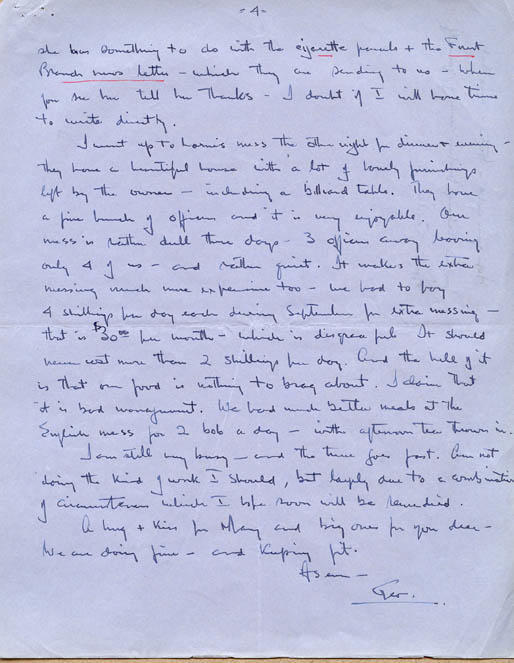 - 4 -
she has something to do with the cigarette parcels + the Front
Branch news letter - which they are sending to us - when
you see her tell her thanks - I doubt if I will have time
to write directly.
I went up to Lorne's mess the other night for dinner + evening -
they have a beautiful house with a lot of lovely furnishings
left by the owner - including a billiard table. They have
a fine bunch of officers and it is very enjoyable. Our
mess is rather dull these days - 3 officers away leaving
only 4 of us - and rather quiet. It makes the extra
messing much more expensive too - we had to pay
4 shillings per day each during September for extra messing -
that is $30.00 per month - which is disgraceful. It should
never cost more than 2 shillings per day. And the hell of it
is that our food is nothing to brag about. I claim that
it is bad management. We had much better meals at the
English mess for 2 bob a day - with afternoon tea thrown in.
I am still very busy - and the time goes fast. Am not
doing the kind of work I should, but largely due to a combination
of circumstances which I hope soon will be remedied.
A hug + kiss for Mary and big ones for you dear -
We are doing fine - and keeping fit.
As ever -
Geo.